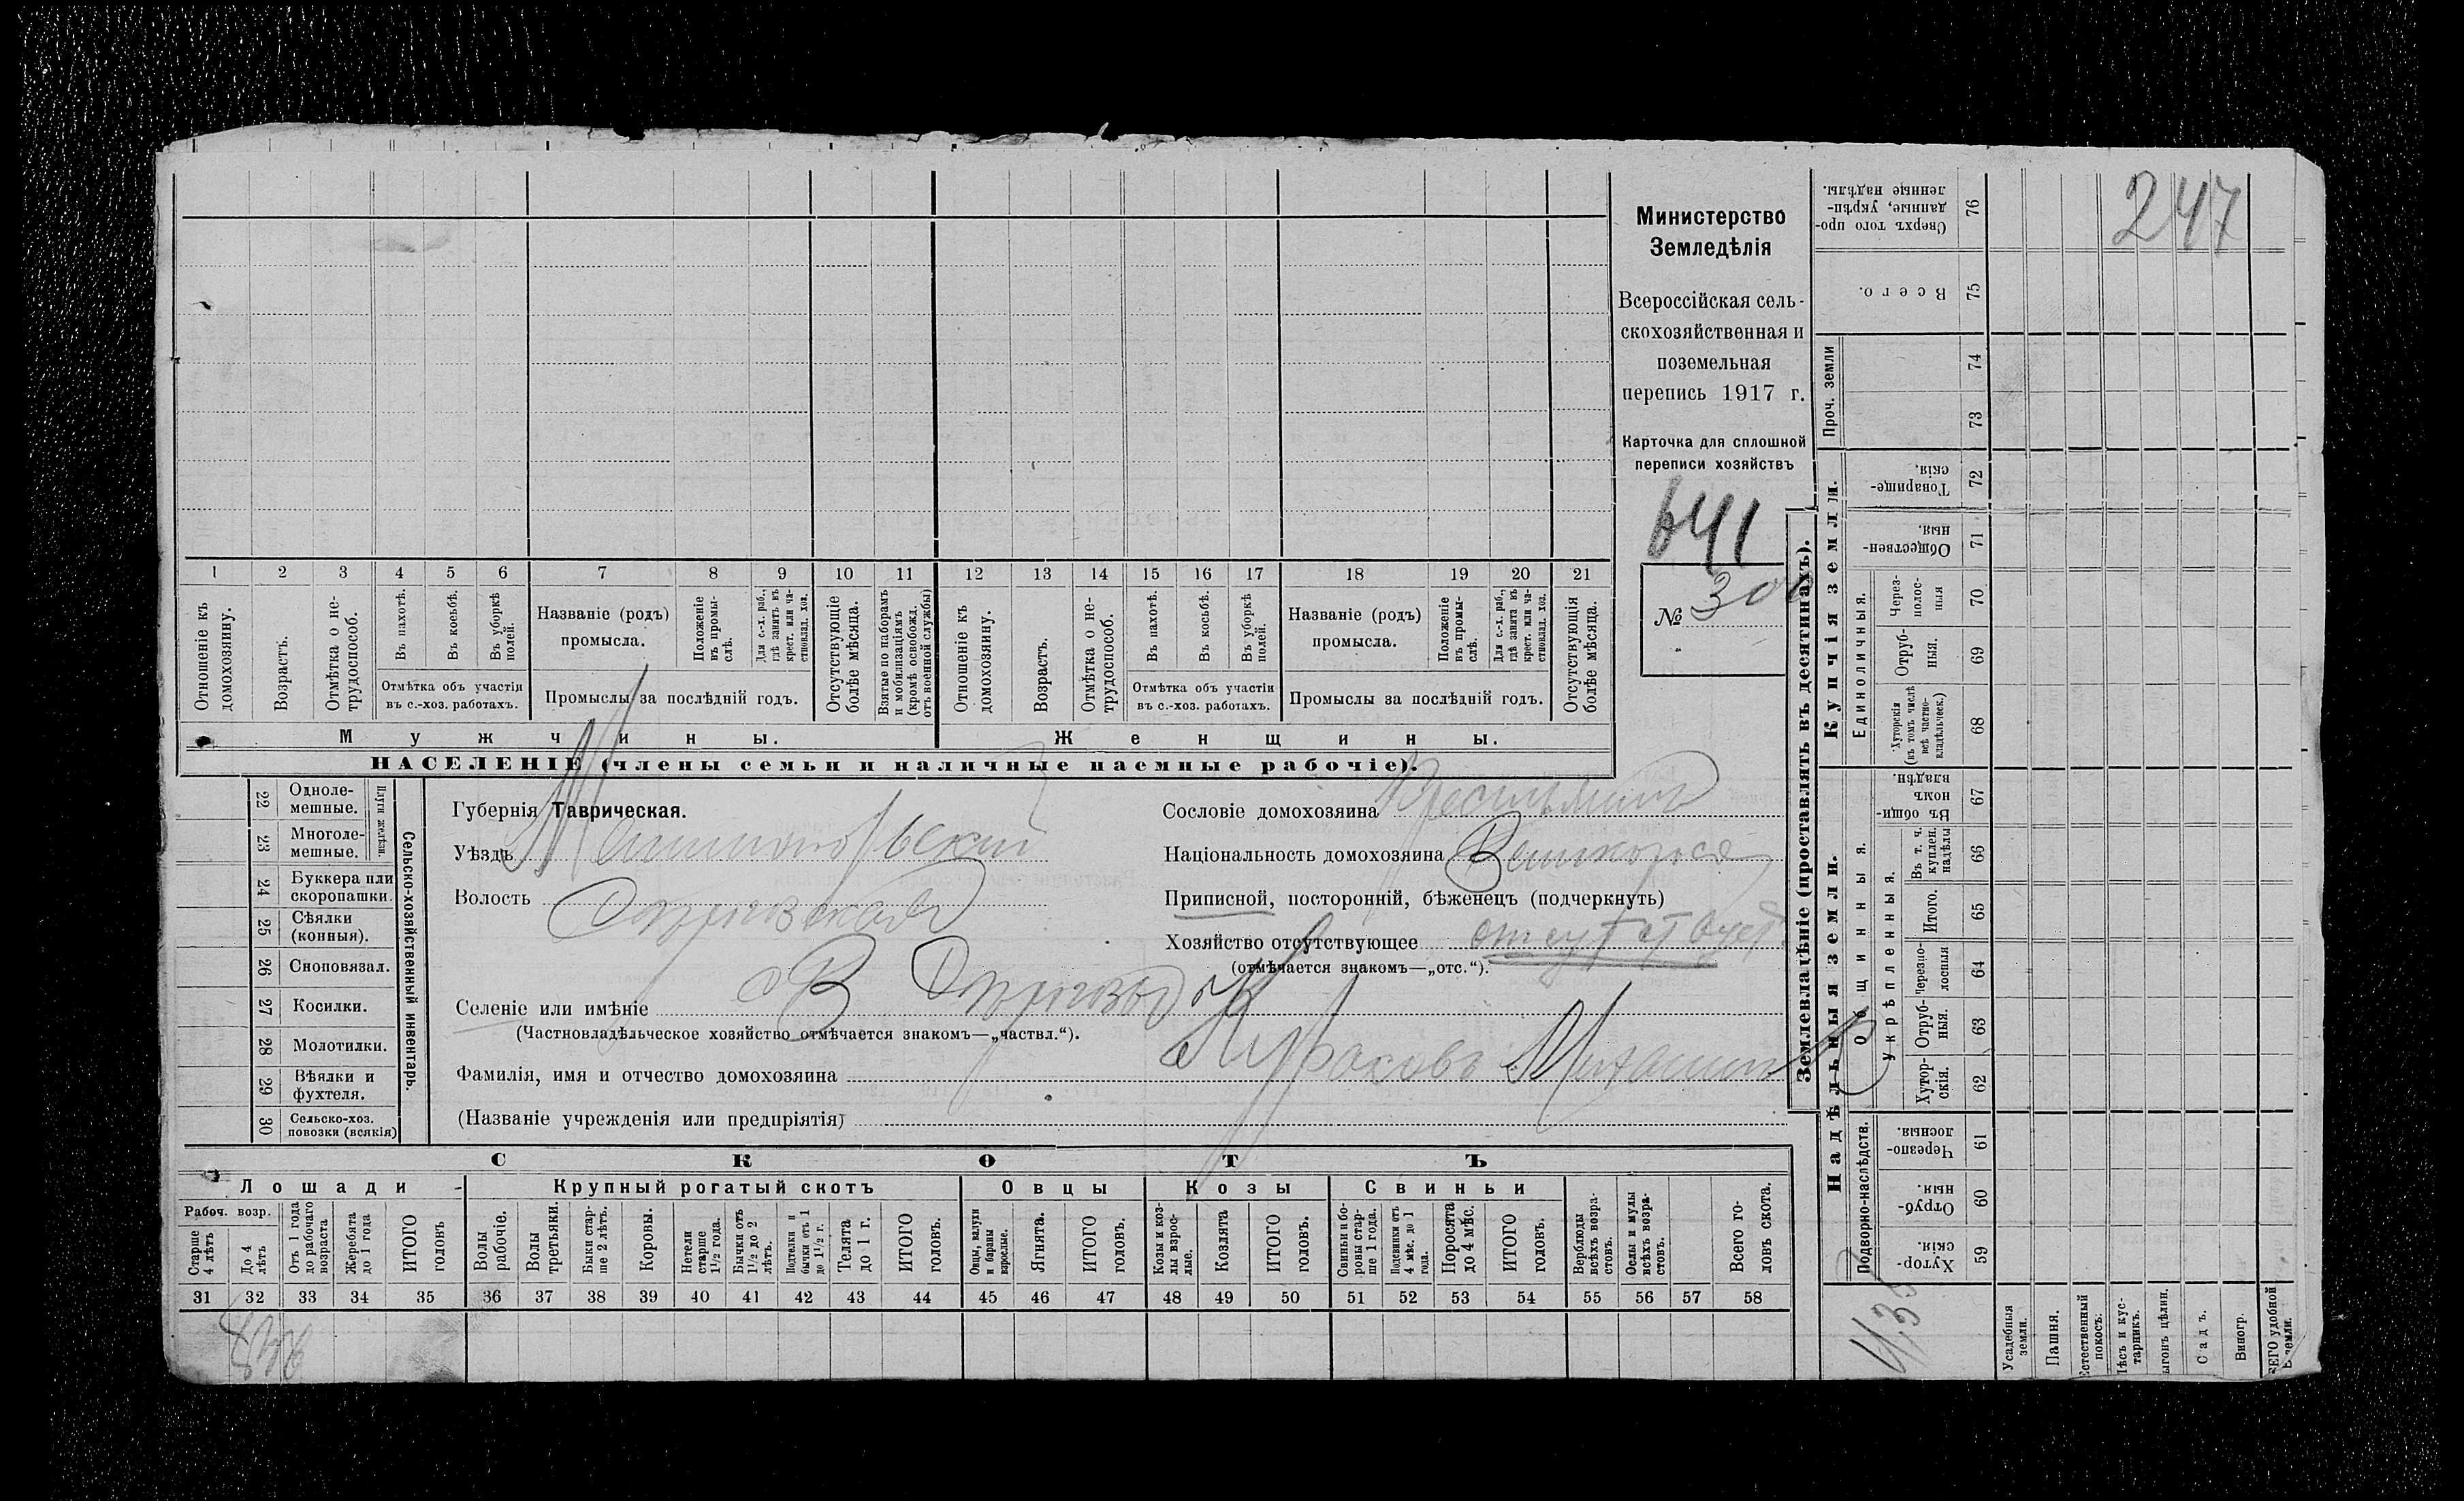 247
Министерство
Земледѣлія
Всероссійская сель-
скохозяйственная и
поземельная
перепись 1917 г.
Карточка для сплошной
переписи хозяйствъ
641
№ 300
1 2 3 4 5 6 7 8 9 10 11 12 13 14 15 16 17 18 19 20 21
Отношеніе къ домохозяину.
Возрастъ.
Отмѣтка о не-трудоспособ.
Въ пахотѣ.
Въ косьбѣ.
Въ уборкѣ полей.
Отмѣтка объ участіи
въ с.-хоз. работахъ.
Названіе (родъ)
промысла.
Положеніе въ промы-слѣ.
Для с.-х. раб., гдѣ занятъ въ крест. или ча-стновлад. хоз.
Промыслы за послѣдній годъ.
Отсутствующіе болѣе мѣсяца.
Взятые по наборамъ и мобилизаціямъ (кромѣ освобожд. отъ военной службы)
Отношеніе къ домохозяину.
Возрастъ.
Отмѣтка о не-трудоспособ.
Въ пахотѣ.
Въ косьбѣ.
Въ уборкѣ полей.
Отмѣтка объ участіи
въ с.-хоз. работахъ.
Названіе (родъ)
промысла.
Положеніе въ промы-слѣ.
Для с.-х. раб., гдѣ занята въ крест. или ча-стновлад. хоз.
Промыслы за послѣдній годъ.
Отсутствующія болѣе мѣсяца.
Мужчины.
Женщины.
НАСЕЛЕНІЕ (члены семьи и наличные наемные рабочіе).
22 Одноле-мешные.
23 Многоле-мешные.
Плуги желѣзн.
24 Буккера или скоропашки.
25 Сѣялки (конныя).
26 Сноповязал.
27 Косилки.
28 Молотилки.
29 Вѣялки и фухтеля.
30 Сельско-хоз. повозки (всякія)
Сельско-хозяйственный инвентарь.
Губернія Таврическая.
Уѣздъ Мелитопольский
Волость
Селеніе или имѣніе
(Частновладѣльческое хозяйство отмѣчается знакомъ—„частвл.“).
Фамилія, имя и отчество домохозяина
(Названіе учрежденія или предпріятія)
Сословіе домохозяина Крестьянинъ
Національность домохозяина Великоросъ
Приписной, посторонній, бѣженецъ (подчеркнуть)
Хозяйство отсутствующее отсутствует
(отмѣчается знакомъ—„отс.“).
СКОТЪ
Лошади
Крупный рогатый скотъ
Овцы
Козы
Свиньи
Рабоч. возр.
Старше 4 лѣтъ
До 4 лѣтъ
Отъ 1 года до рабочаго возраста
Жеребята до 1 года
ИТОГО головъ
Волы рабочіе.
Волы третьяки.
Быки стар-ше 2 лѣтъ.
Коровы.
Нетели старше 1½ года.
Бычки отъ 1½ до 2 лѣтъ.
Подтелки и бычки отъ 1 до 1½ г.
Телята до 1 г.
ИТОГО головъ.
Овцы, валухи и бараны взрослые.
Ягнята.
ИТОГО головъ.
Козы и коз-лы взрос-лые.
Козлята
ИТОГО головъ.
Свиньи и бо-ровы стар-ше 1 года.
Подсвинки отъ 4 мѣс. до 1 года.
Поросята до 4 мѣс.
ИТОГО головъ.
Верблюды всѣхъ возра-стовъ.
Ослы и мулы всѣхъ возра-стовъ.
Всего го-ловъ скота.
31 32 33 34 35 36 37 38 39 40 41 42 43 44 45 46 47 48 49 50 51 52 53 54 55 56 57 58
Землевладѣніе (проставлять въ десятинахъ).
Надѣльныя земли.
Купчія земли.
Проч. земли
Подворно-наслѣдств.
Общинныя.
Укрѣпленныя.
Единоличныя.
Сверхъ того про-данные, укрѣп-ленные надѣлы. 76
Всего. 75
74
73
Товарище-скія. 72
Обществен-ныя. 71
Через-полос-ныя 70
Отруб-ныя. 69
Хуторскія (въ томъ числѣ всѣ частно-владѣльческ.) 68
Въ общи-номъ владѣн. 67
Въ т. ч. куплен. надѣлы 66
Итого. 65
Черезпо-лосныя 64
Отруб-ныя. 63
Хутор-скія. 62
Черезпо-лосныя. 61
Отруб-ныя. 60
Хутор-скія. 59
Усадебныя земли.
Пашня.
Естественный покосъ.
Лѣсъ и кус-тарникъ.
Выгонъ цѣлин.
Садъ.
Виногр.